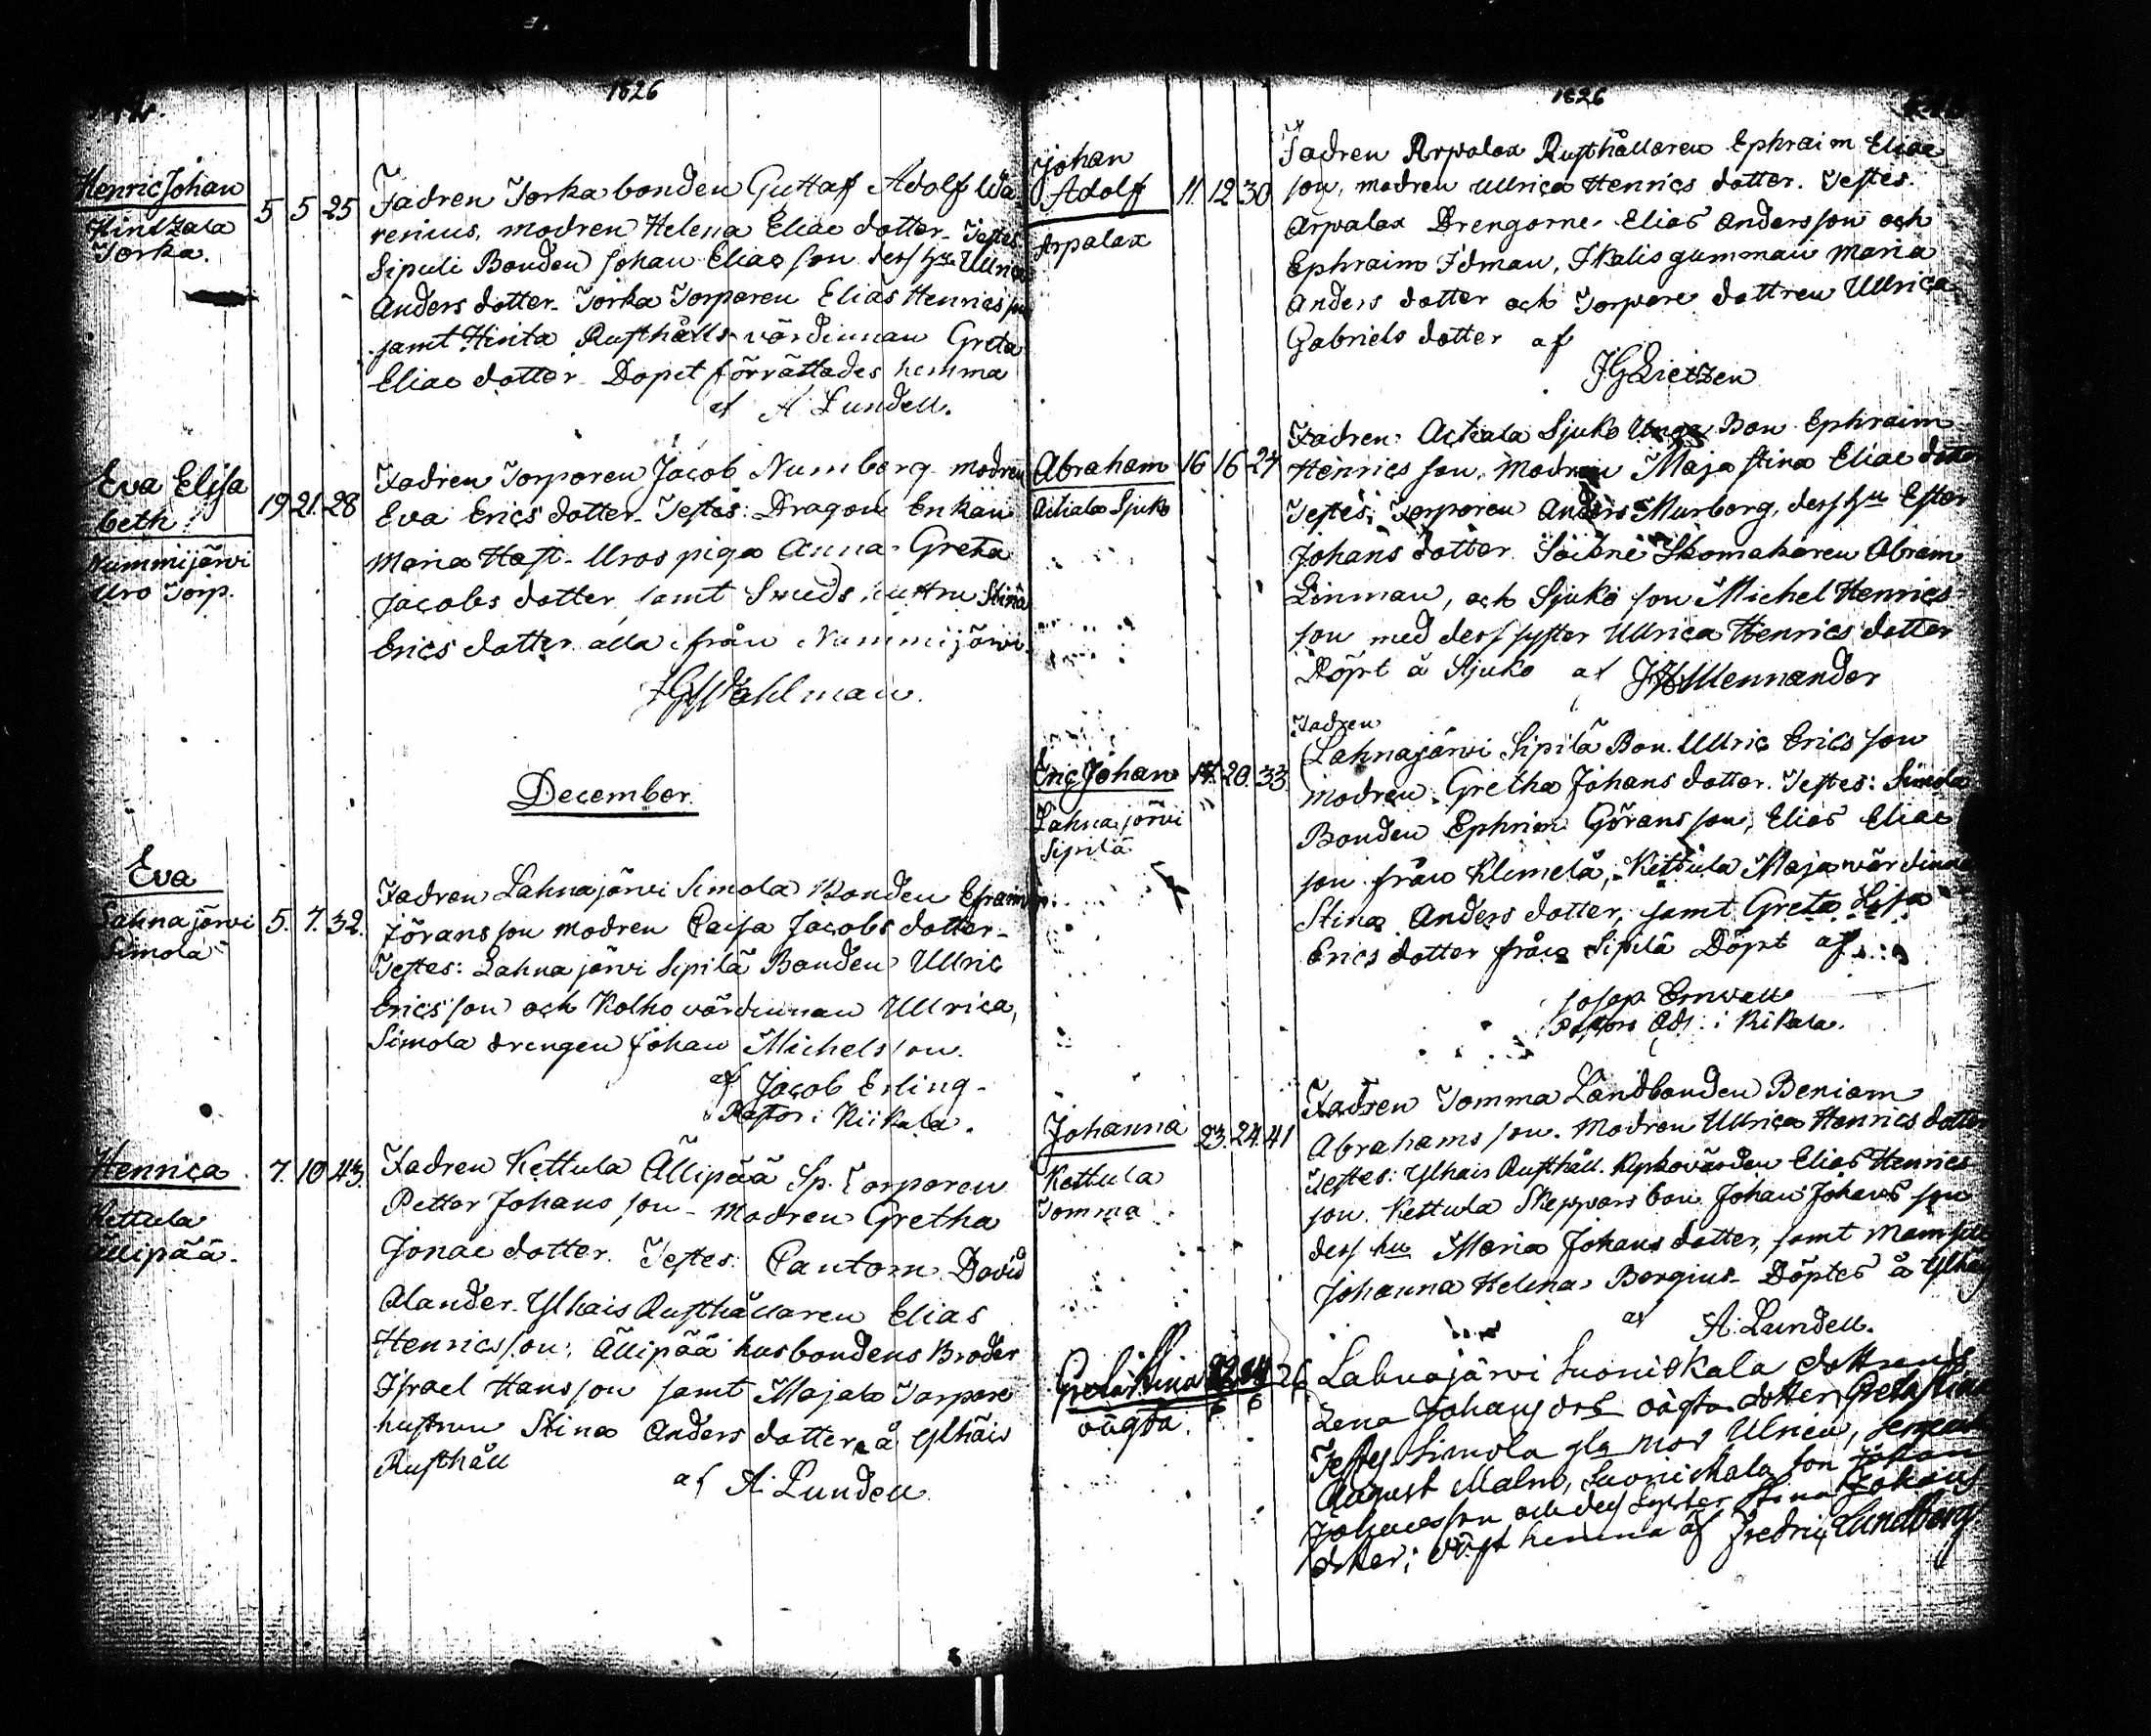 1826
Henric Johan
Hintzala
Torka.
5 5 25
Fadren Torka bonden Gustaf Adolf Wa
renius, modren Helena Eliae dotter. Testes
Sipuli Bonden Johan Eliae son dess hu Ullrica
Anders dotter. Torka Torparen Elias Henrics son
samt Hinta Rusthålls värdinnan Greta
Eliae dotter. Dopet förrättades hemma
af A Lundell.
Eva Elisa
beth
Nummijärvi
Uro Torp.
19 21. 28
Fadren Torparen Jacob Numberg modren
Eva Erics dotter. Testes: Dragon Enkan
Maria Hast. Uros piga Anna Greta
Jacobs dotter samt Smeds hustru Stina
Erics dotter alla från Nummijärvi.
Wahlman.
December.
Eva
Lahnajärvi
Simola
5. 7. 32.
Fadren Lahnajärvi Simola Bonden Efraim
Jörans son modren Caisa Jacobs dotter.
Testes: Lahnajärvi Sipilä Bonden Ullric
Erics son och Kolho värdinnan Ullrica,
Simola drengen Johan Michelsson.
af Jacob Erling
Pastor i Kiikala.
Henrica
Kettula
Ällipää.
7. 10 43.
Fadren Kettula Ällipää Sp. Torparen
Petter Johans son. Modren Gretha
Jonae dotter. Testes: Cantorn David
Alander. Ylhais Rusthållaren Elias
Henricsson, Ällipää husbondens Broder
Israel Hansson samt Majala Torpare
hustrun Stina Anders dotter å Ylhäis
Rusthåll
af A. Lundell
1826
Johan
Adolf
Arpalax
11. 12 30
Fadren Arpalax Rusthållaren Ephraim Eliae
son, modren Ullrica Henrics dotter. Testes.
Arpalax Drengarne Elias Andersson och
Ephraim Idman, Ikalis gumman Maria
Anders dotter och Torpare dottren Ullrica
Gabriels dotter af
JG Lietzen
Abraham
Sjuko
16 16 24
Fadren: Sjuko Unge Bon Ephraim
Henrics son, Modren Maja Stina Eliae dotter
Testes: Torparen Anders Murborg, dess hu Ester
Johans dotter. Skomakaren Abram
Linman, och Sjuko son Michel Henrics
son med dess syster Ullrica Henrics dotter
Döpt å Sjuko af Mennander
Eric Johan
Lahnajärvi
Sipilä
17. 20. 33
Fadren
Lahnajärvi Sipilä Bon. Ullric Erics son
modren Gretha Johans dotter. Testes: Simola
Bonden Ephrim Görans son, Elias Eliae
son från Klemelä, Kettula Maja värdinna
Stina Anders dotter, samt Greta Lisa
Erics dotter från Sipilä Döpt af
Josep Enwall
Pastors Adj: i Kikala.
Johanna
Kettula
Tomma
23. 24. 41
Fadren Tomma Landbonden Beniam
Abrahams son. Modren Ullrica Henrics dotter
Testes: Ylhais Rusthåll. Elias Henrics
son. Kettula Skeppars bon Johan Johans son
dess hu Maria Johans dotter, samt Mamsell
Johanna Helena Bergius. Döptes å Ylhäis
af A. Lundell.
Greta Stina
oägta.
26
Lahnajärvi Suoniskala dottrens
Lena Johans dot oägta dotter Greta Stina
Testes Simola gla mor Ulrica,
August Malm, Suoniskala son Johan
Johansson och dess Syster Stina Johans
dotter; döpt hemma af Fredric Lundberg